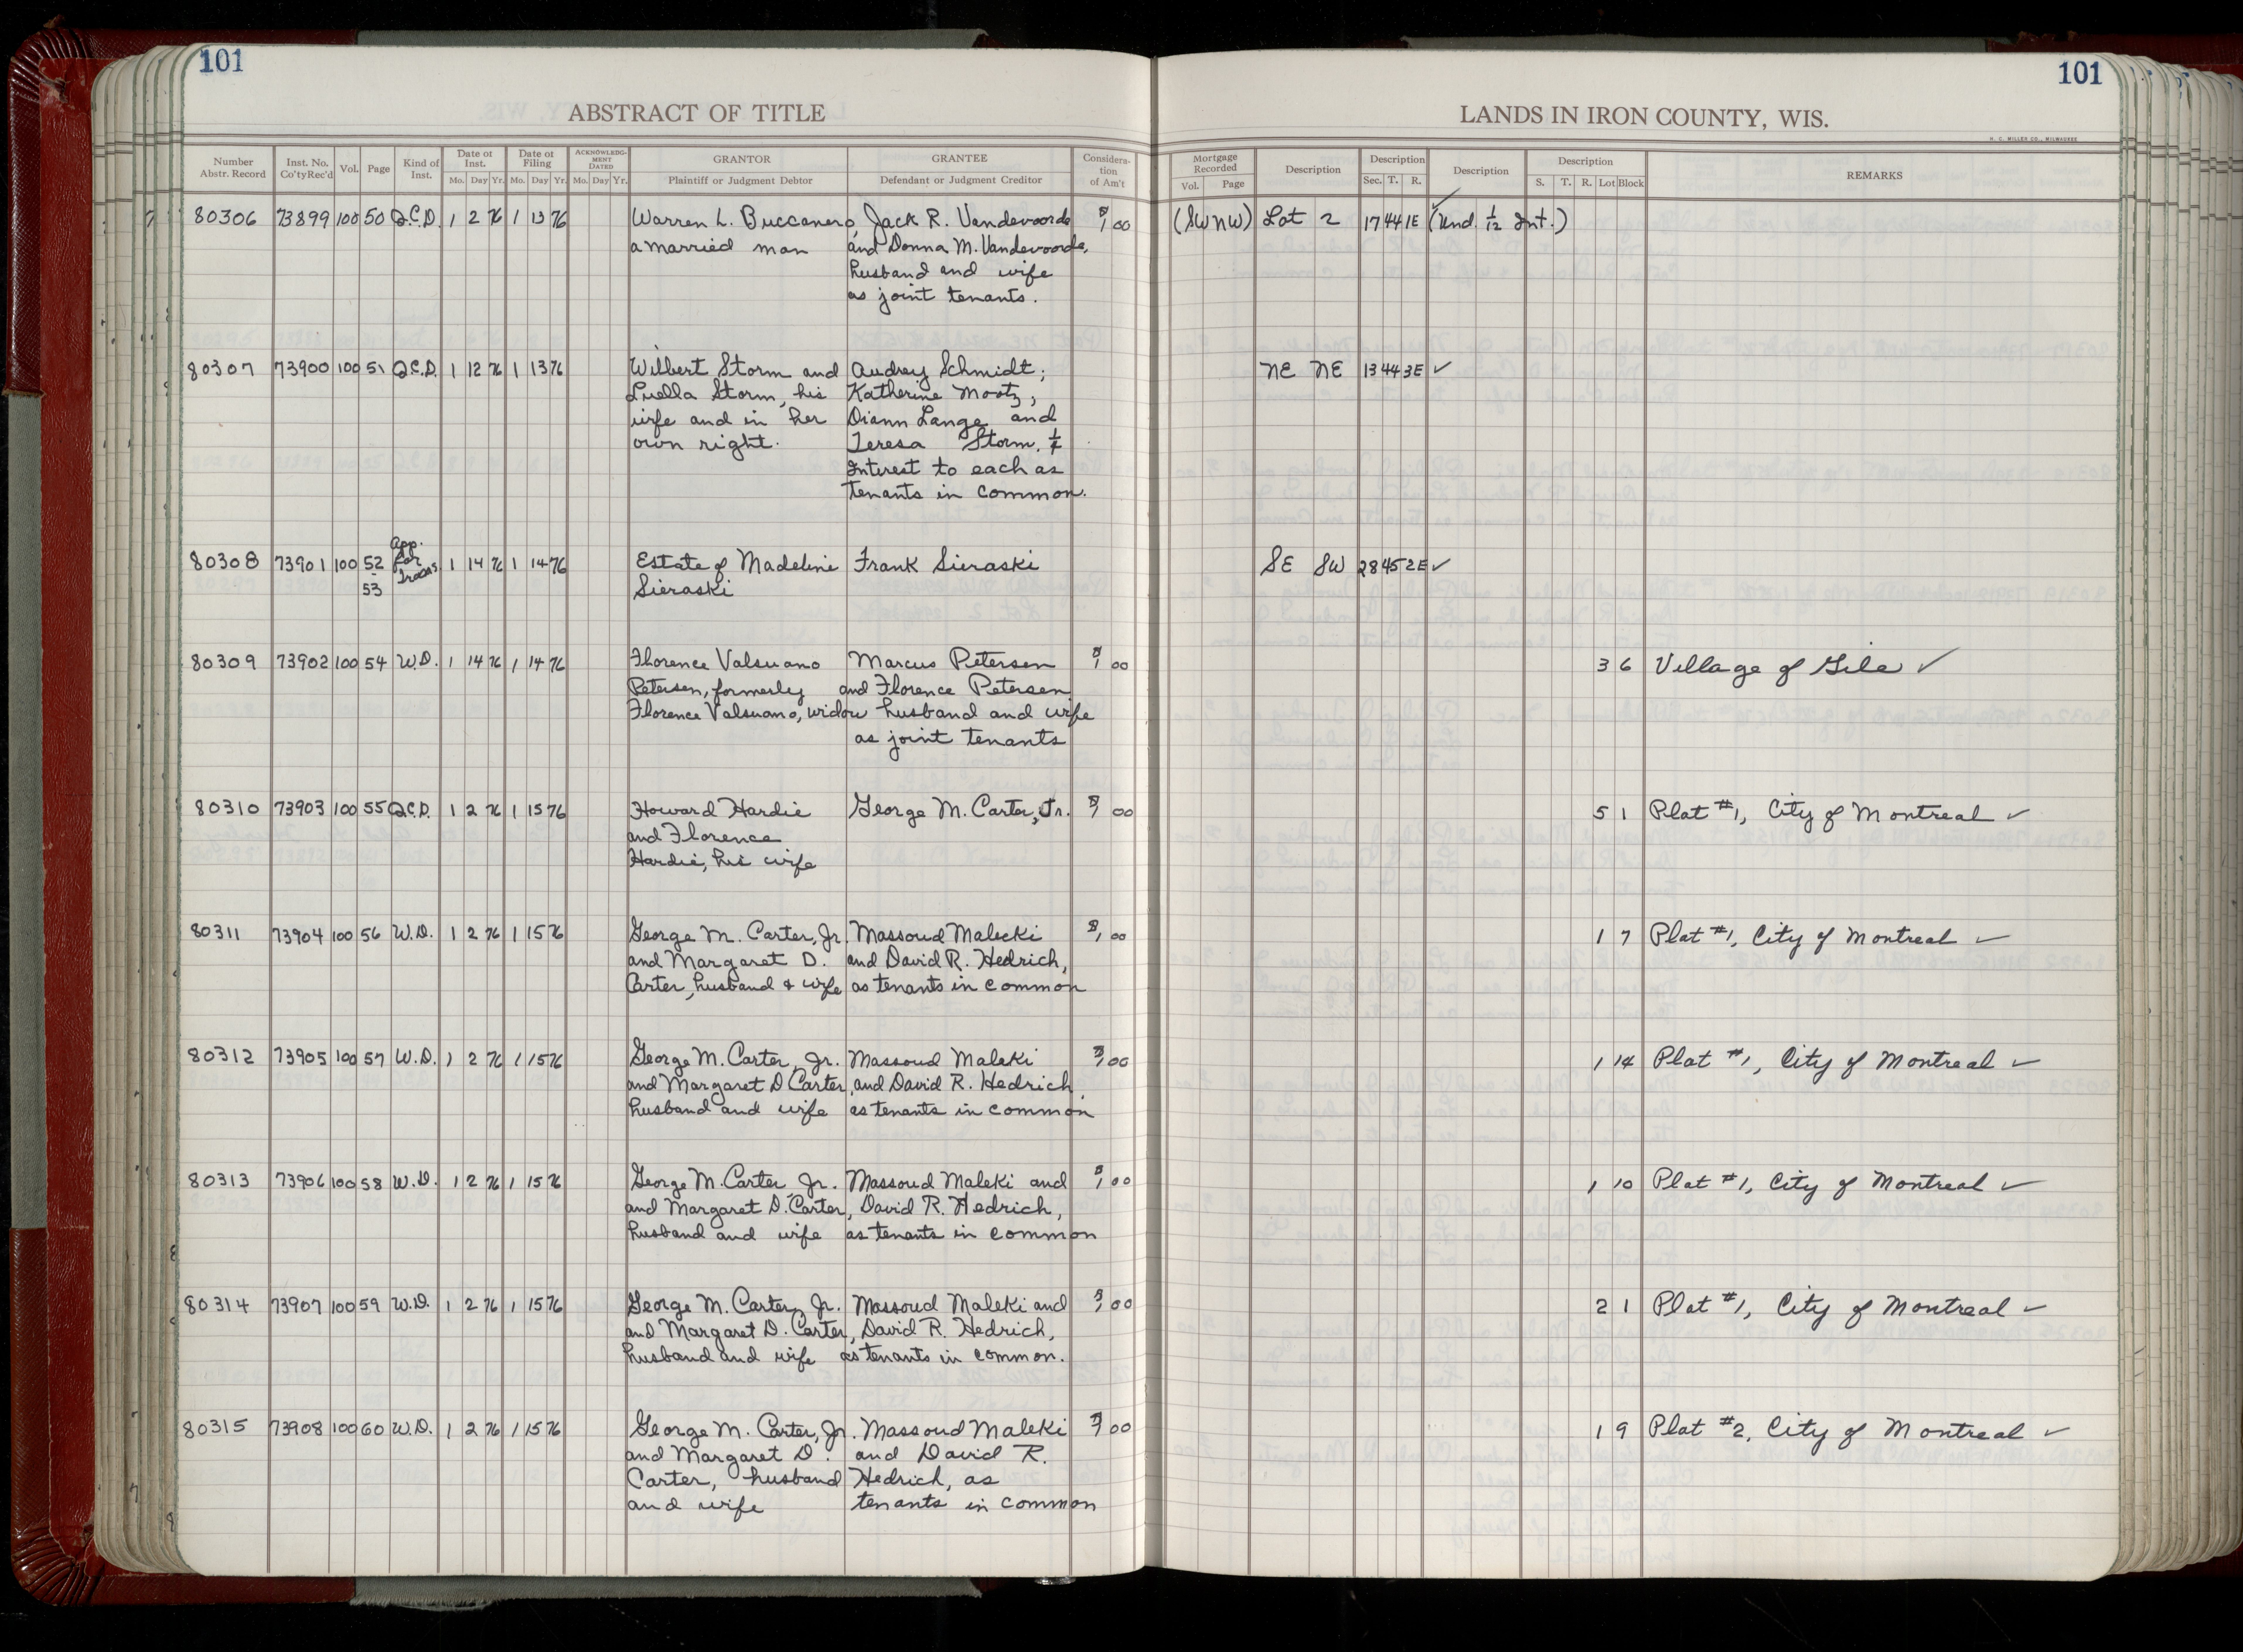 101
101
ABSTRACT OF TITLE
LANDS IN IRON COUNTY, WIS.
H. C. MILLER CO., MILWAUKEE
Number Abstr. Record Inst. No. Co'ty Rec'd Vol. Page Kind of Inst. Date of Inst. Mo. Day Yr. Date of Filing Mo. Day Yr. ACKNOWLEDGMENT DATED Mo. Day Yr. GRANTOR Plaintiff or Judgment Debtor GRANTEE Defendant or Judgment Creditor Consideration of Am't Mortgage Recorded Vol. Page Description Description Sec. T. R. Description Description S. T. R. Lot Block REMARKS
80306 73899 100 50 Q.C.D. 1 2 76 1 13 76 Warren L. Buccanero, Jack R. Vandevoorde $1 00 (SW NW) Lot 2 17 44 1E (Und. 1/12 Int.) ✓
a married man and Donna M. Vandevoorde,
husband and wife
as joint tenants.
80307 73900 100 51 Q.C.D. 1 12 76 1 13 76 Wilbert Storm and Audrey Schmidt; NE NE 13 44 3E ✓
Luella Storm, his Katherine Mootz;
wife and in her Diann Lange and
own right. Teresa Storm, 1/4
Interest to each as
tenants in common.
80308 73901 100 52-53 App. for Trans. 1 14 76 1 14 76 Estate of Madeline Frank Sieraski SE SW 28 45 2E ✓
Sieraski
80309 73902 100 54 W.D. 1 14 76 1 14 76 Florence Valsuano Marcus Petersen $1 00 3 6 Village of Gile ✓
Petersen, formerly and Florence Petersen
Florence Valsuano, widow husband and wife
as joint tenants
80310 73903 100 55 Q.C.D. 1 2 76 1 15 76 Howard Hardie George M. Carter, Jr. $1 00 5 1 Plat #1, City of Montreal ✓
and Florence
Hardie, his wife
80311 73904 100 56 W.D. 1 2 76 1 15 76 George M. Carter, Jr. Massoud Malecki $1 00 1 7 Plat #1, City of Montreal ✓
and Margaret D. and David R. Hedrich,
Carter, husband & wife as tenants in common
80312 73905 100 57 W.D. 1 2 76 1 15 76 George M. Carter, Jr. Massoud Maleki $1 00 1 14 Plat #1, City of Montreal ✓
and Margaret D Carter, and David R. Hedrich,
husband and wife as tenants in common
80313 73906 100 58 W.D. 1 2 76 1 15 76 George M. Carter, Jr. Massoud Maleki and $1 00 1 10 Plat #1, City of Montreal ✓
and Margaret D. Carter, David R. Hedrich,
husband and wife as tenants in common
80314 73907 100 59 W.D. 1 2 76 1 15 76 George M. Carter, Jr. Massoud Maleki and $1 00 2 1 Plat #1, City of Montreal ✓
and Margaret D. Carter, David R. Hedrich,
husband and wife as tenants in common.
80315 73908 100 60 W.D. 1 2 76 1 15 76 George M. Carter, Jr. Massoud Maleki $1 00 1 9 Plat #2, City of Montreal ✓
and Margaret D. and David R.
Carter, husband Hedrich, as
and wife tenants in common